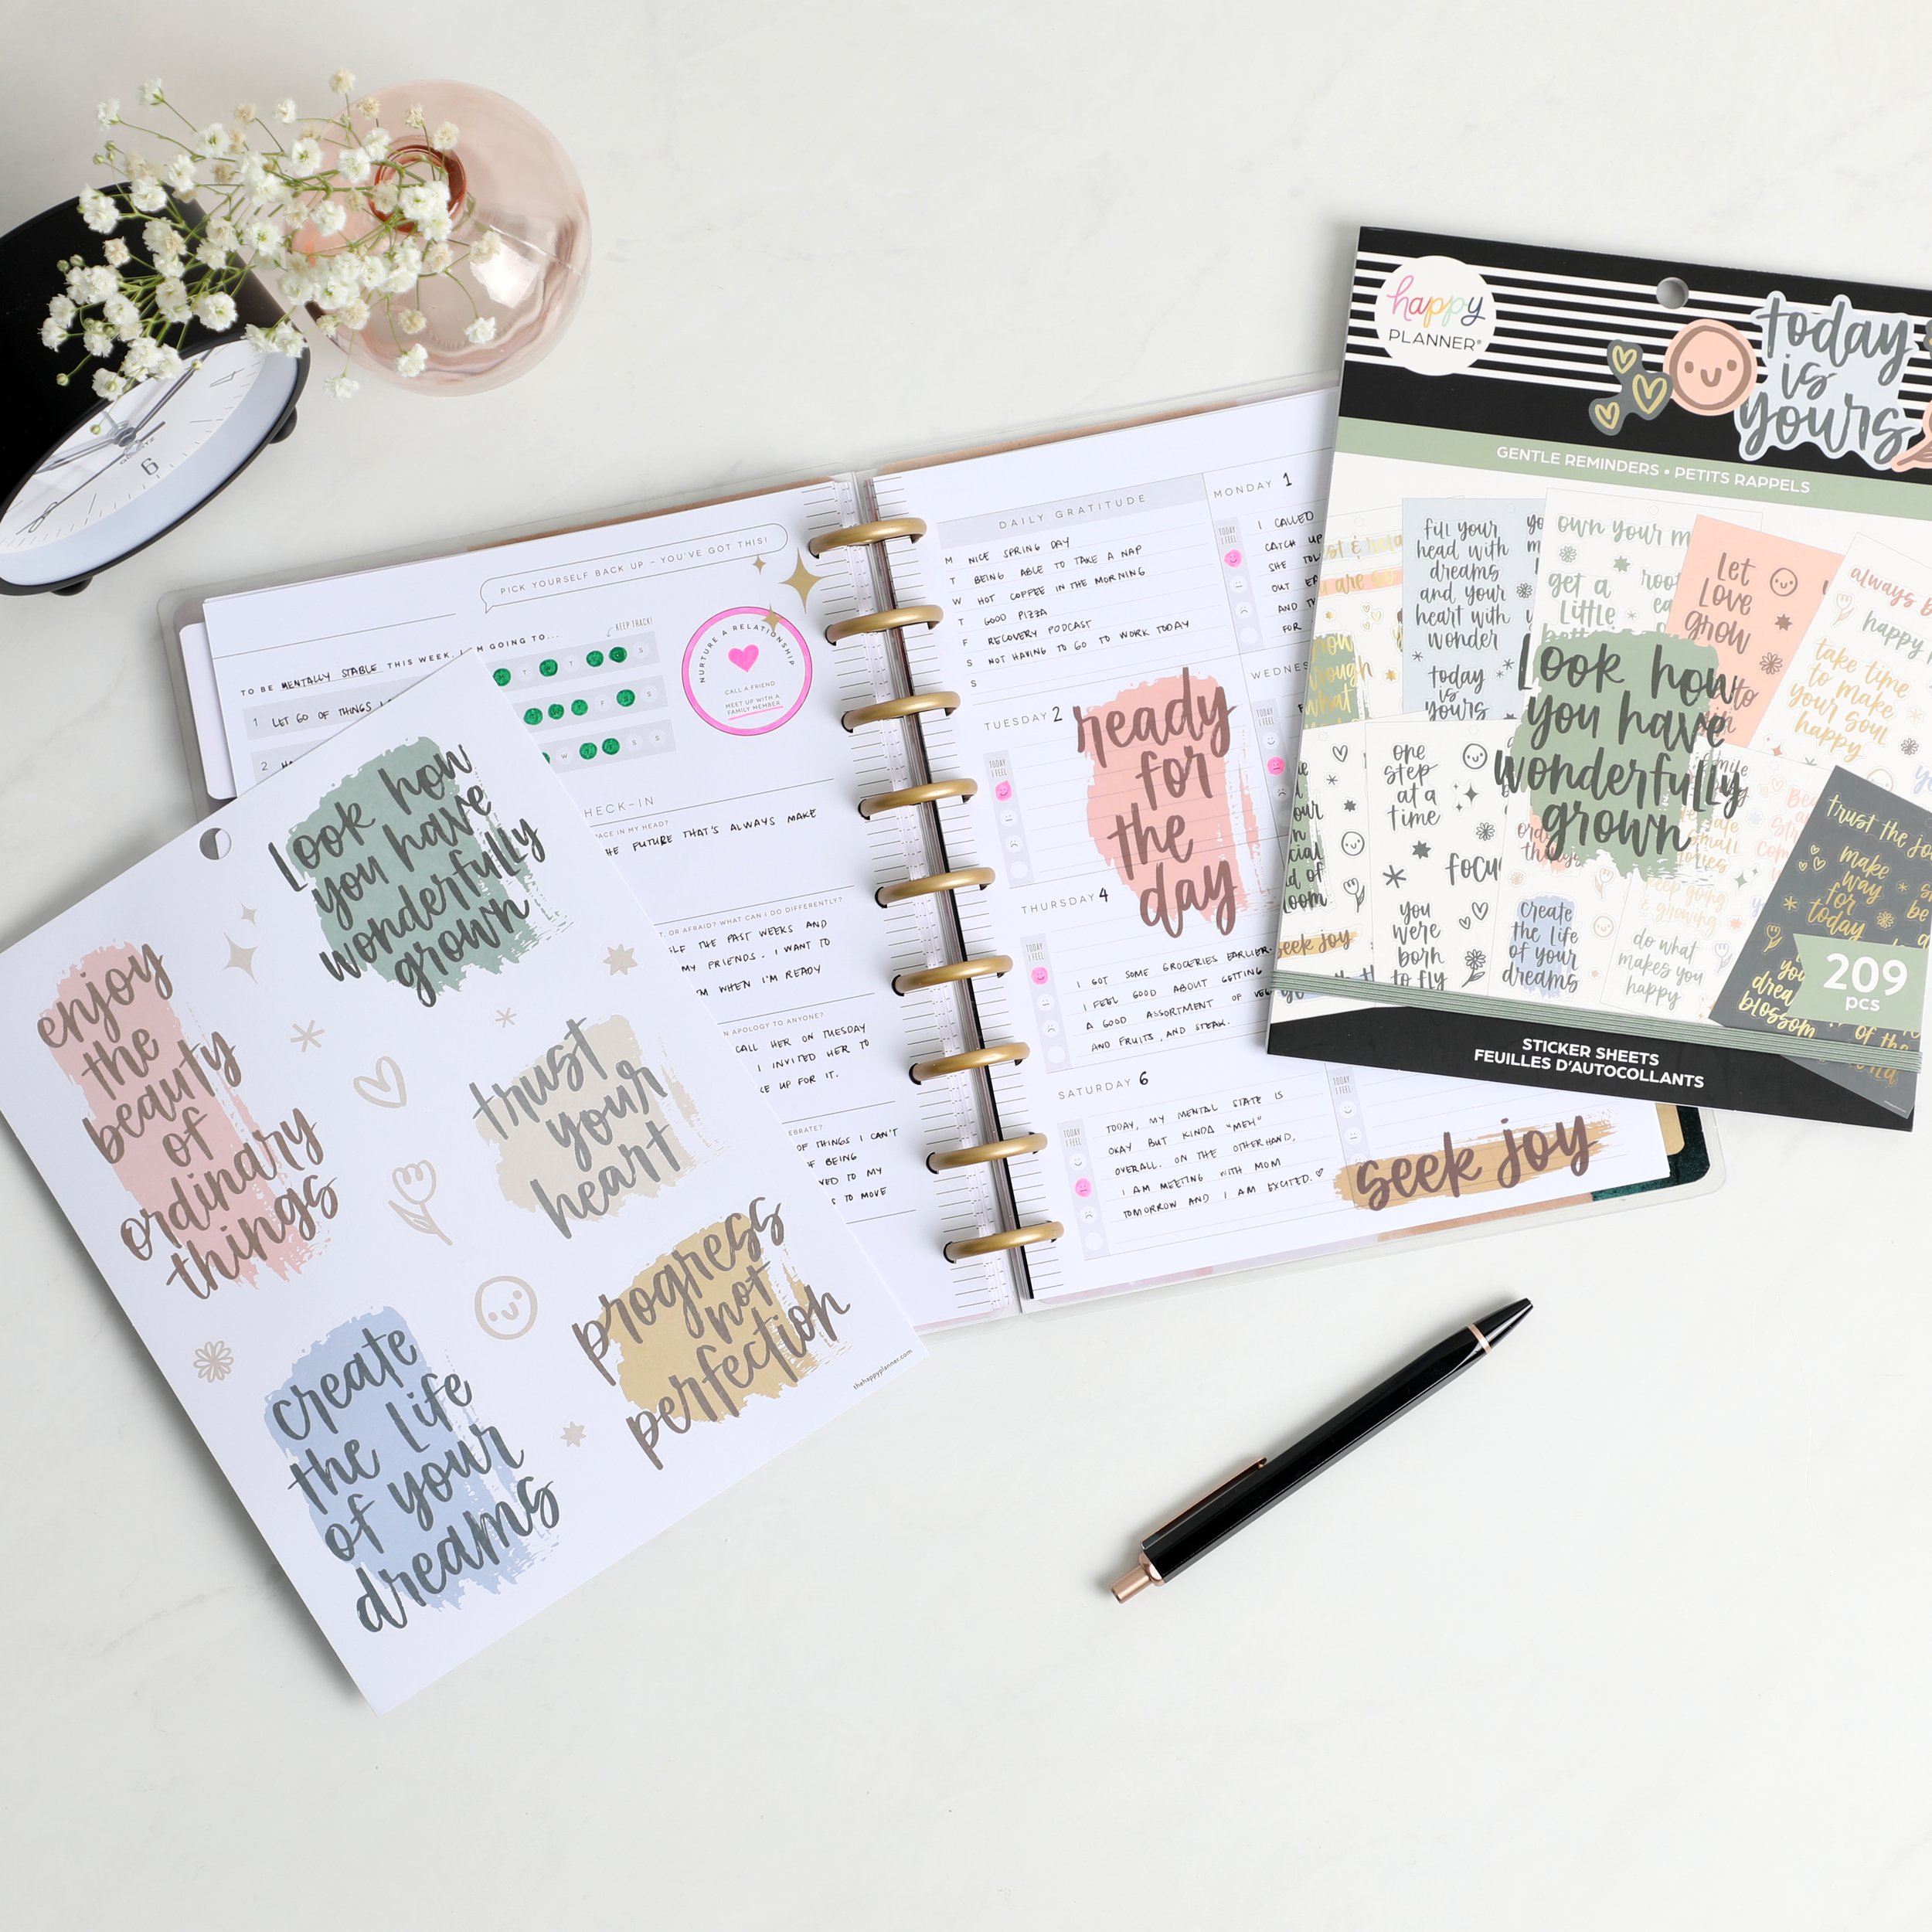 6
4
PICK YOURSELF BACK UP – YOU'VE GOT THIS!
KEEP TRACK!
TO BE MENTALLY STABLE THIS WEEK, I'M GOING TO...
1 LET GO OF THINGS
2
NURTURE A RELATIONSHIP
CALL A FRIEND
MEET UP WITH A
FAMILY MEMBER
CHECK-IN
SPACE IN MY HEAD?
THE FUTURE THAT'S ALWAYS MAKE
OR AFRAID? WHAT CAN I DO DIFFERENTLY?
THE PAST WEEKS AND
MY FRIENDS. I WANT TO
WHEN I'M READY
AN APOLOGY TO ANYONE?
CALL HER ON TUESDAY
I INVITED HER TO
UP FOR IT.
CELEBRATE?
OF THINGS I CAN'T
OF BEING
TO MY
TO MOVE
DAILY GRATITUDE
M NICE SPRING DAY
T BEING ABLE TO TAKE A NAP
W HOT COFFEE IN THE MORNING
T GOOD PIZZA
F RECOVERY PODCAST
S NOT HAVING TO GO TO WORK TODAY
S
MONDAY 1
TODAY I FEEL
I CALLED
CATCH UP
SHE TOLD
OUT
AND
FOR
TUESDAY 2
TODAY I FEEL
ready
for
the
day
TODAY I FEEL
THURSDAY 4
TODAY I FEEL
I GOT SOME GROCERIES EARLIER.
I FEEL GOOD ABOUT GETTING
A GOOD ASSORTMENT OF
AND FRUITS, AND STEAK.
SATURDAY 6
TODAY I FEEL
TODAY, MY MENTAL STATE IS
OKAY BUT KINDA "MEH"
OVERALL. ON THE OTHERHAND,
I AM MEETING WITH MOM
TOMORROW AND I AM EXCITED. ♡
TODAY I FEEL
seek joy
Look how
you have
wonderfully
grown
enjoy
the
beauty
of
ordinary
things
trust
your
heart
progress
not
perfection
create
the life
of your
dreams
thehappyplanner.com
happy
PLANNER®
today
is
yours
GENTLE REMINDERS • PETITS RAPPELS
fill your
head with
dreams
and your
heart with
wonder
today
is
yours
own your m
get a
little
Let
Love
grow
always
happy
take time
to make
your soul
happy
Look how
you have
wonderfully
grown
one
step
at a
time
focu
you
were
born
to fly
seek joy
create
the life
of your
dreams
keep going
& growing
do what
makes you
happy
trust the
make
way
for
today
blossom
209
pcs
STICKER SHEETS
FEUILLES D'AUTOCOLLANTS